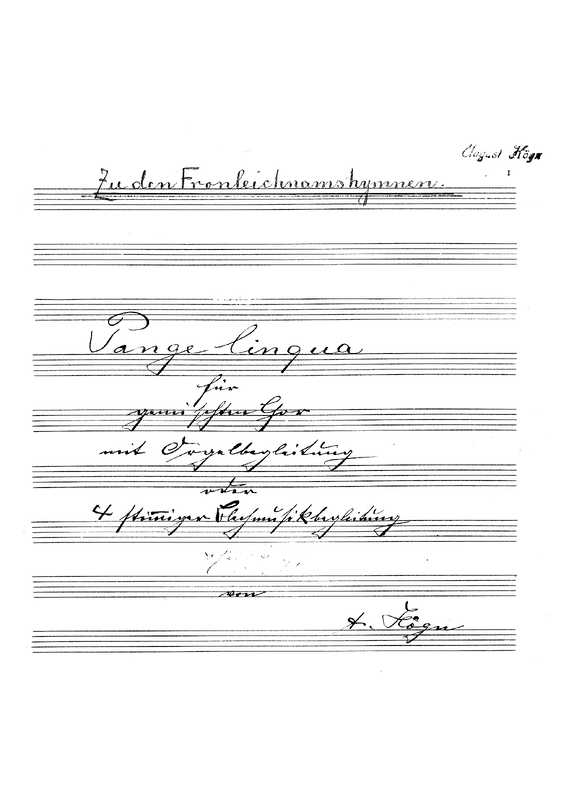 August Högn
Zu den Fronleichnamshymnen.
Pange lingua
für
gemischten Chor
mit Orgelbegleitung
oder
4 stimmiger Blechmusikbegleitung
von
A. Högn